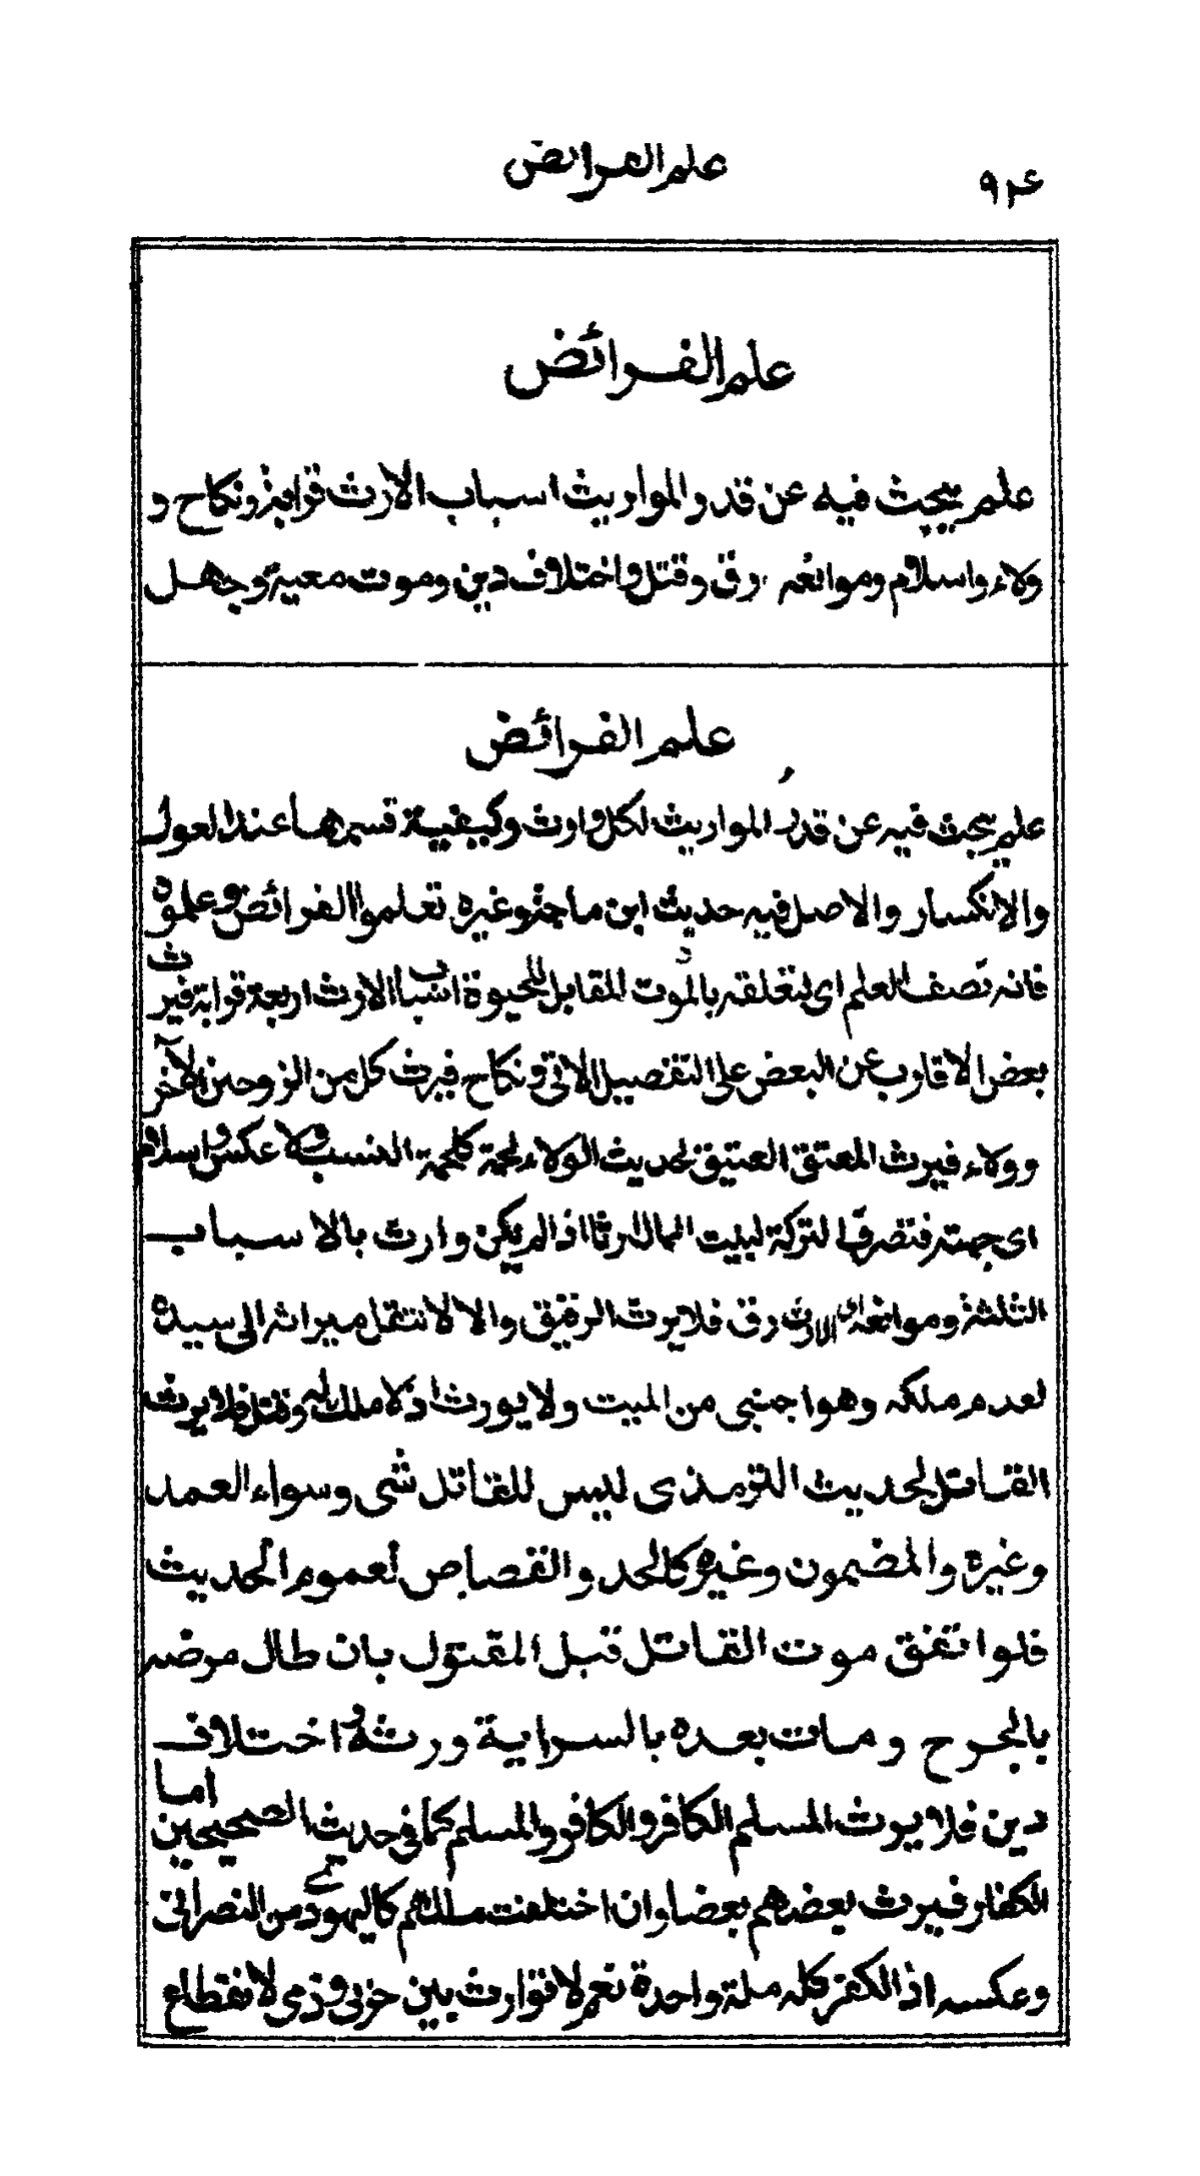 علم الفرائض
٩٤
علم الفرائض
علم يبحث فيه عن قدر المواريث اسباب الارث قرابة ونكاح و
ولاء واسلام وموانعه رق وقتل واختلاف دين وموت معية وجهل
علم الفرائض
علم يبحث فيه عن قدر المواريث لكل وارث وكيفية قسمها عند العول
والانكسار والاصل فيه حديث ابن ماجة وغيره تعلموا الفرائض وعلموه
فانه نصف العلم اى لتعلقه بالموت المقابل للحيوة اسباب الارث اربعة قرابة فيرث
بعض الاقارب عن البعض على التفصيل الاتى ونكاح فيرث كل من الزوجين الآخر
وولاء فيرث المعتق العتيق لحديث الولاء لحمة كلحمة النسب ولا عكس واسلام
اى جهته فتصرف التركة لبيت المال ارثا اذا لم يكن وارث بالاسباب
الثلثة وموانعه اى الارث رق فلا يرث الرقيق والا لانتقل ميراثه الى سيده
لعدم ملكه وهو اجنبى من الميت ولا يورث اذ لا ملك له وقتل فلا يرث
القاتل لحديث الترمذى ليس للقاتل شى وسواء العمد
وغيره والمضمون وغيره كالحد والقصاص لعموم الحديث
فلو اتفق موت القاتل قبل المقتول بان طال مرضه
بالجرح ومات بعده بالسراية ورثه واختلاف
دين فلا يرث المسلم الكافر والكافر المسلم كما فى حديث الصحيحين اما
الكفار فيرث بعضهم بعضا وان اختلفت مللهم كاليهودى من النصرانى
وعكسه اذ الكفر كله ملة واحدة نعم لا توارث بين حربى وذمى لانقطاع